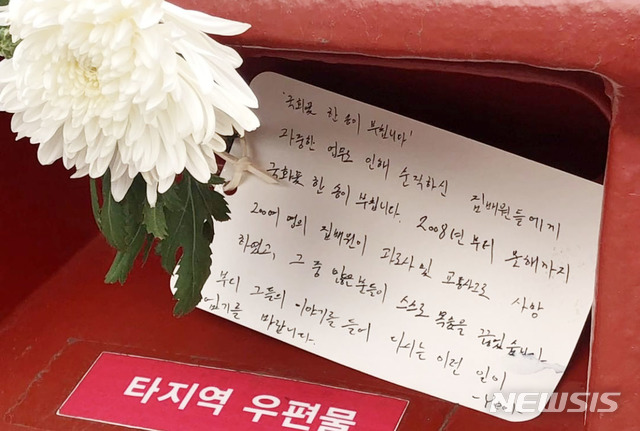 '국화꽃 한 송이 부칩니다'
과중한 업무로 인해 순직하신 집배원들에게
국화꽃 한 송이 부칩니다. 2008년부터 올해까지
200여 명의 집배원이 과로사 및 교통사고로 사망
하였고, 그 중 많은 분들이 스스로 목숨을 끊었습니다
부디 그들의 이야기를 들어 다시는 이런 일이
없기를 바랍니다.
타지역 우편물
NEWSIS